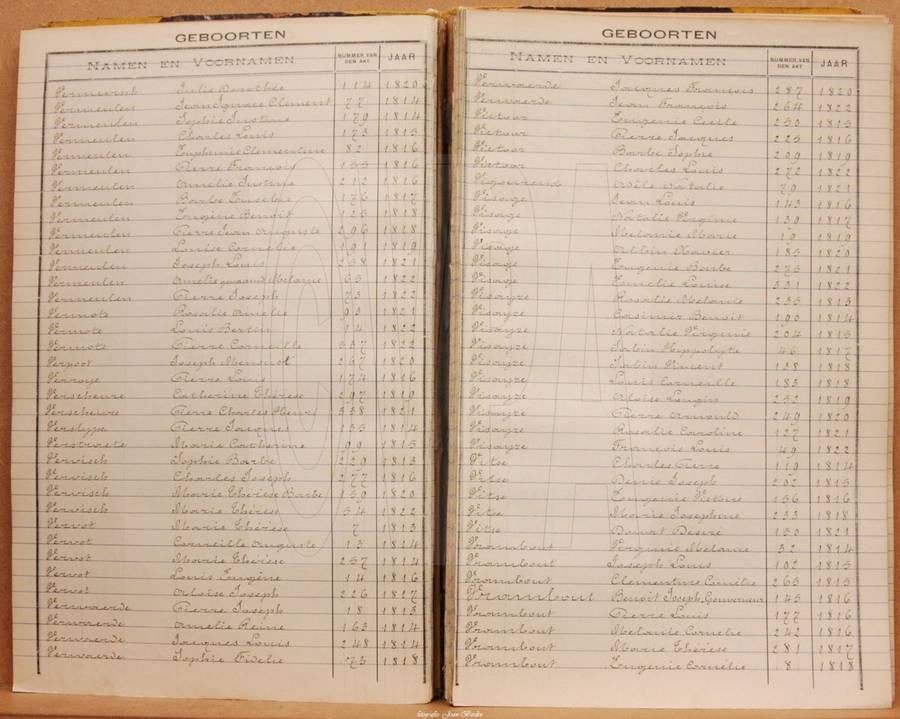 GEBOORTEN
NAMEN EN VOORNAMEN NUMMER VAN DEN AKT JAAR
Vermeersch Julie Dorothée 114 1820
Vermeulen Jean Ignace Clement 77 1814
Vermeulen Sophie Justine 179 1814
Vermeulen Charles Louis 173 1815
Vermeulen Euphemie Clementine 82 1816
Vermeulen Pierre François 155 1816
Vermeulen Amelie Justine 212 1816
Vermeulen Barbe Eusebie 176 1817
Vermeulen Eugène Benoit 125 1818
Vermeulen Pierre Jean Auguste 296 1818
Vermeulen Louise Cornélie 191 1819
Vermeulen Joseph Louis 238 1821
Vermeulen Amelie Melanie 65 1822
Vermeulen Pierre Joseph 73 1822
Vermote Rosalie Amelie 93 1821
Vermote Louis Bertin 14 1822
Vermote Pierre Corneille 337 1822
Verpoot Joseph 257 1820
Verroye Pierre Louis 174 1816
Verscheure Catherine Thérèse 297 1819
Verscheure Pierre Charles Henri 338 1821
Verslype Pierre Jacques 155 1814
Verstraete Marie Catherine 99 1815
Vervisch Sophie Barbe 229 1813
Vervisch Charles Joseph 277 1816
Vervisch Marie Thérèse Barbe 159 1820
Vervisch Marie Thérèse 54 1822
Vervot Marie Thérèse 7 1813
Vervot Corneille Auguste 13 1814
Vervot Marie Thérèse 257 1814
Vervot Louis Eugène 14 1816
Vervot Aloise Joseph 226 1817
Verwaerde Pierre Joseph 18 1813
Verwaerde Amelie Reine 163 1814
Verwaerde Jacques Louis 248 1814
Verwaerde Sophie Fidelie 73 1818
GEBOORTEN
NAMEN EN VOORNAMEN NUMMER VAN DEN AKT JAAR
Verwaerde Jacques François 287 1820
Verwaerde Jean François 264 1822
Victoor Eugenie Cecile 250 1815
Victoor Pierre Jacques 225 1816
Victoor Barbe Sophie 209 1819
Victoor Charles Louis 272 1822
Natalie 79 1821
Visage Jean Louis 143 1816
Visage Natalie Virginie 139 1817
Visage Melanie Marie 19 1819
Visage Albin Xavier 185 1820
Visage Eugenie Barbe 275 1821
Visage Emelie Louise 331 1822
Visayze Rosalie Melanie 235 1813
Visayze Casimir Benoit 190 1814
Visayze Natalie Virginie 204 1815
Visayze Sabin Hippolyte 46 1817
Visayze Sabin Vincent 128 1818
Visayze Louis Corneille 183 1818
Visayze Aloise Longin 252 1819
Visayze Pierre Arnould 249 1820
Visayze Rosalie Caroline 127 1821
Visayze François Louis 49 1822
Vitse Charles Pierre 119 1814
Vitse Denis Joseph 202 1815
Vitse Eugenie Victoire 156 1816
Vitse Marie Josephine 233 1818
Vitse Désiré 150 1821
Vrambout Virginie Melanie 32 1814
Vrambout Joseph Louis 102 1815
Vrambout Clementine Camille 265 1815
Vrambout Benoit Joseph Gouverneur 145 1816
Vrambout Pierre Louis 177 1816
Vrambout Melanie Cornelie 242 1816
Vrambout Marie Thérèse 281 1817
Vrambout Eugenie Cornélie 8 1818